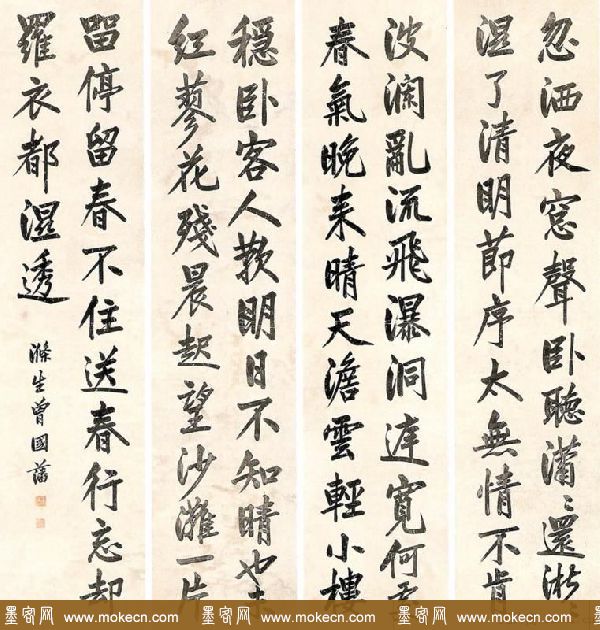 忽洒夜窓聲卧聽瀟〻還淅〻
湿了清明節序太無情不肯
波瀾亂流飛瀑洞達寬何
春氣晚来晴天澹雲輕小樓
穩卧客人歎明日不知晴也未
紅蓼花殘晨起望沙灘一片
畱停留春不住送春行忘却
羅衣都濕透
滌生曾國藩
墨客网 www.mokecn.com 墨客网 www.mokecn.com 墨客网 www.mokecn.com